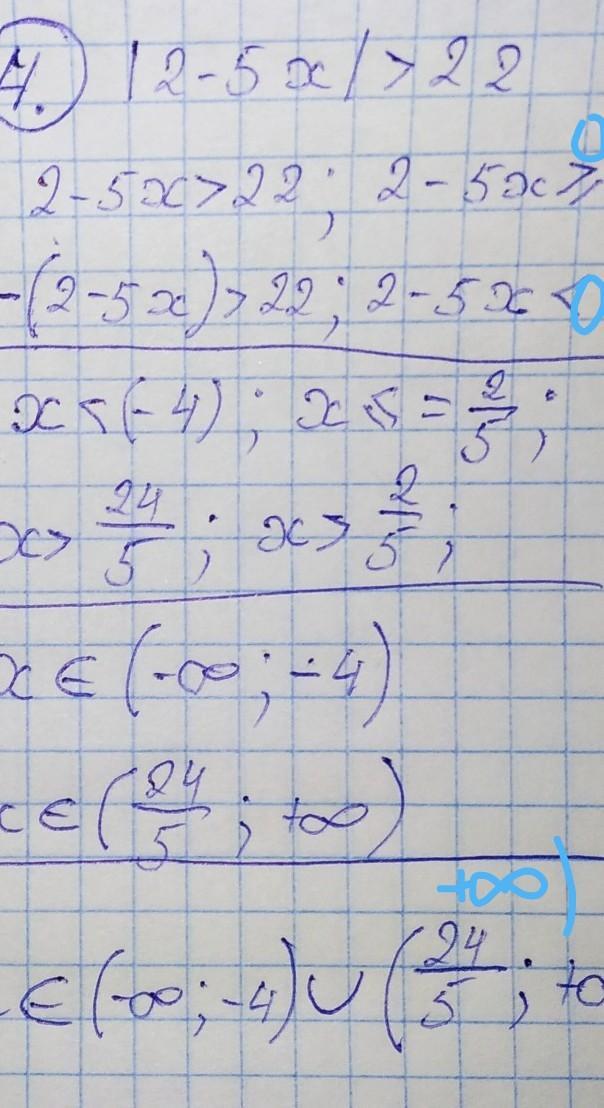 4. |2-5x|>22
2-5x>22; 2-5x≥0
-(2-5x)>22; 2-5x<0
x<(-4); x≤=2/5;
x>24/5; x>2/5;
x∈(-∞;-4)
x∈(24/5;+∞)
∈(-∞;-4)∪(24/5;+∞)